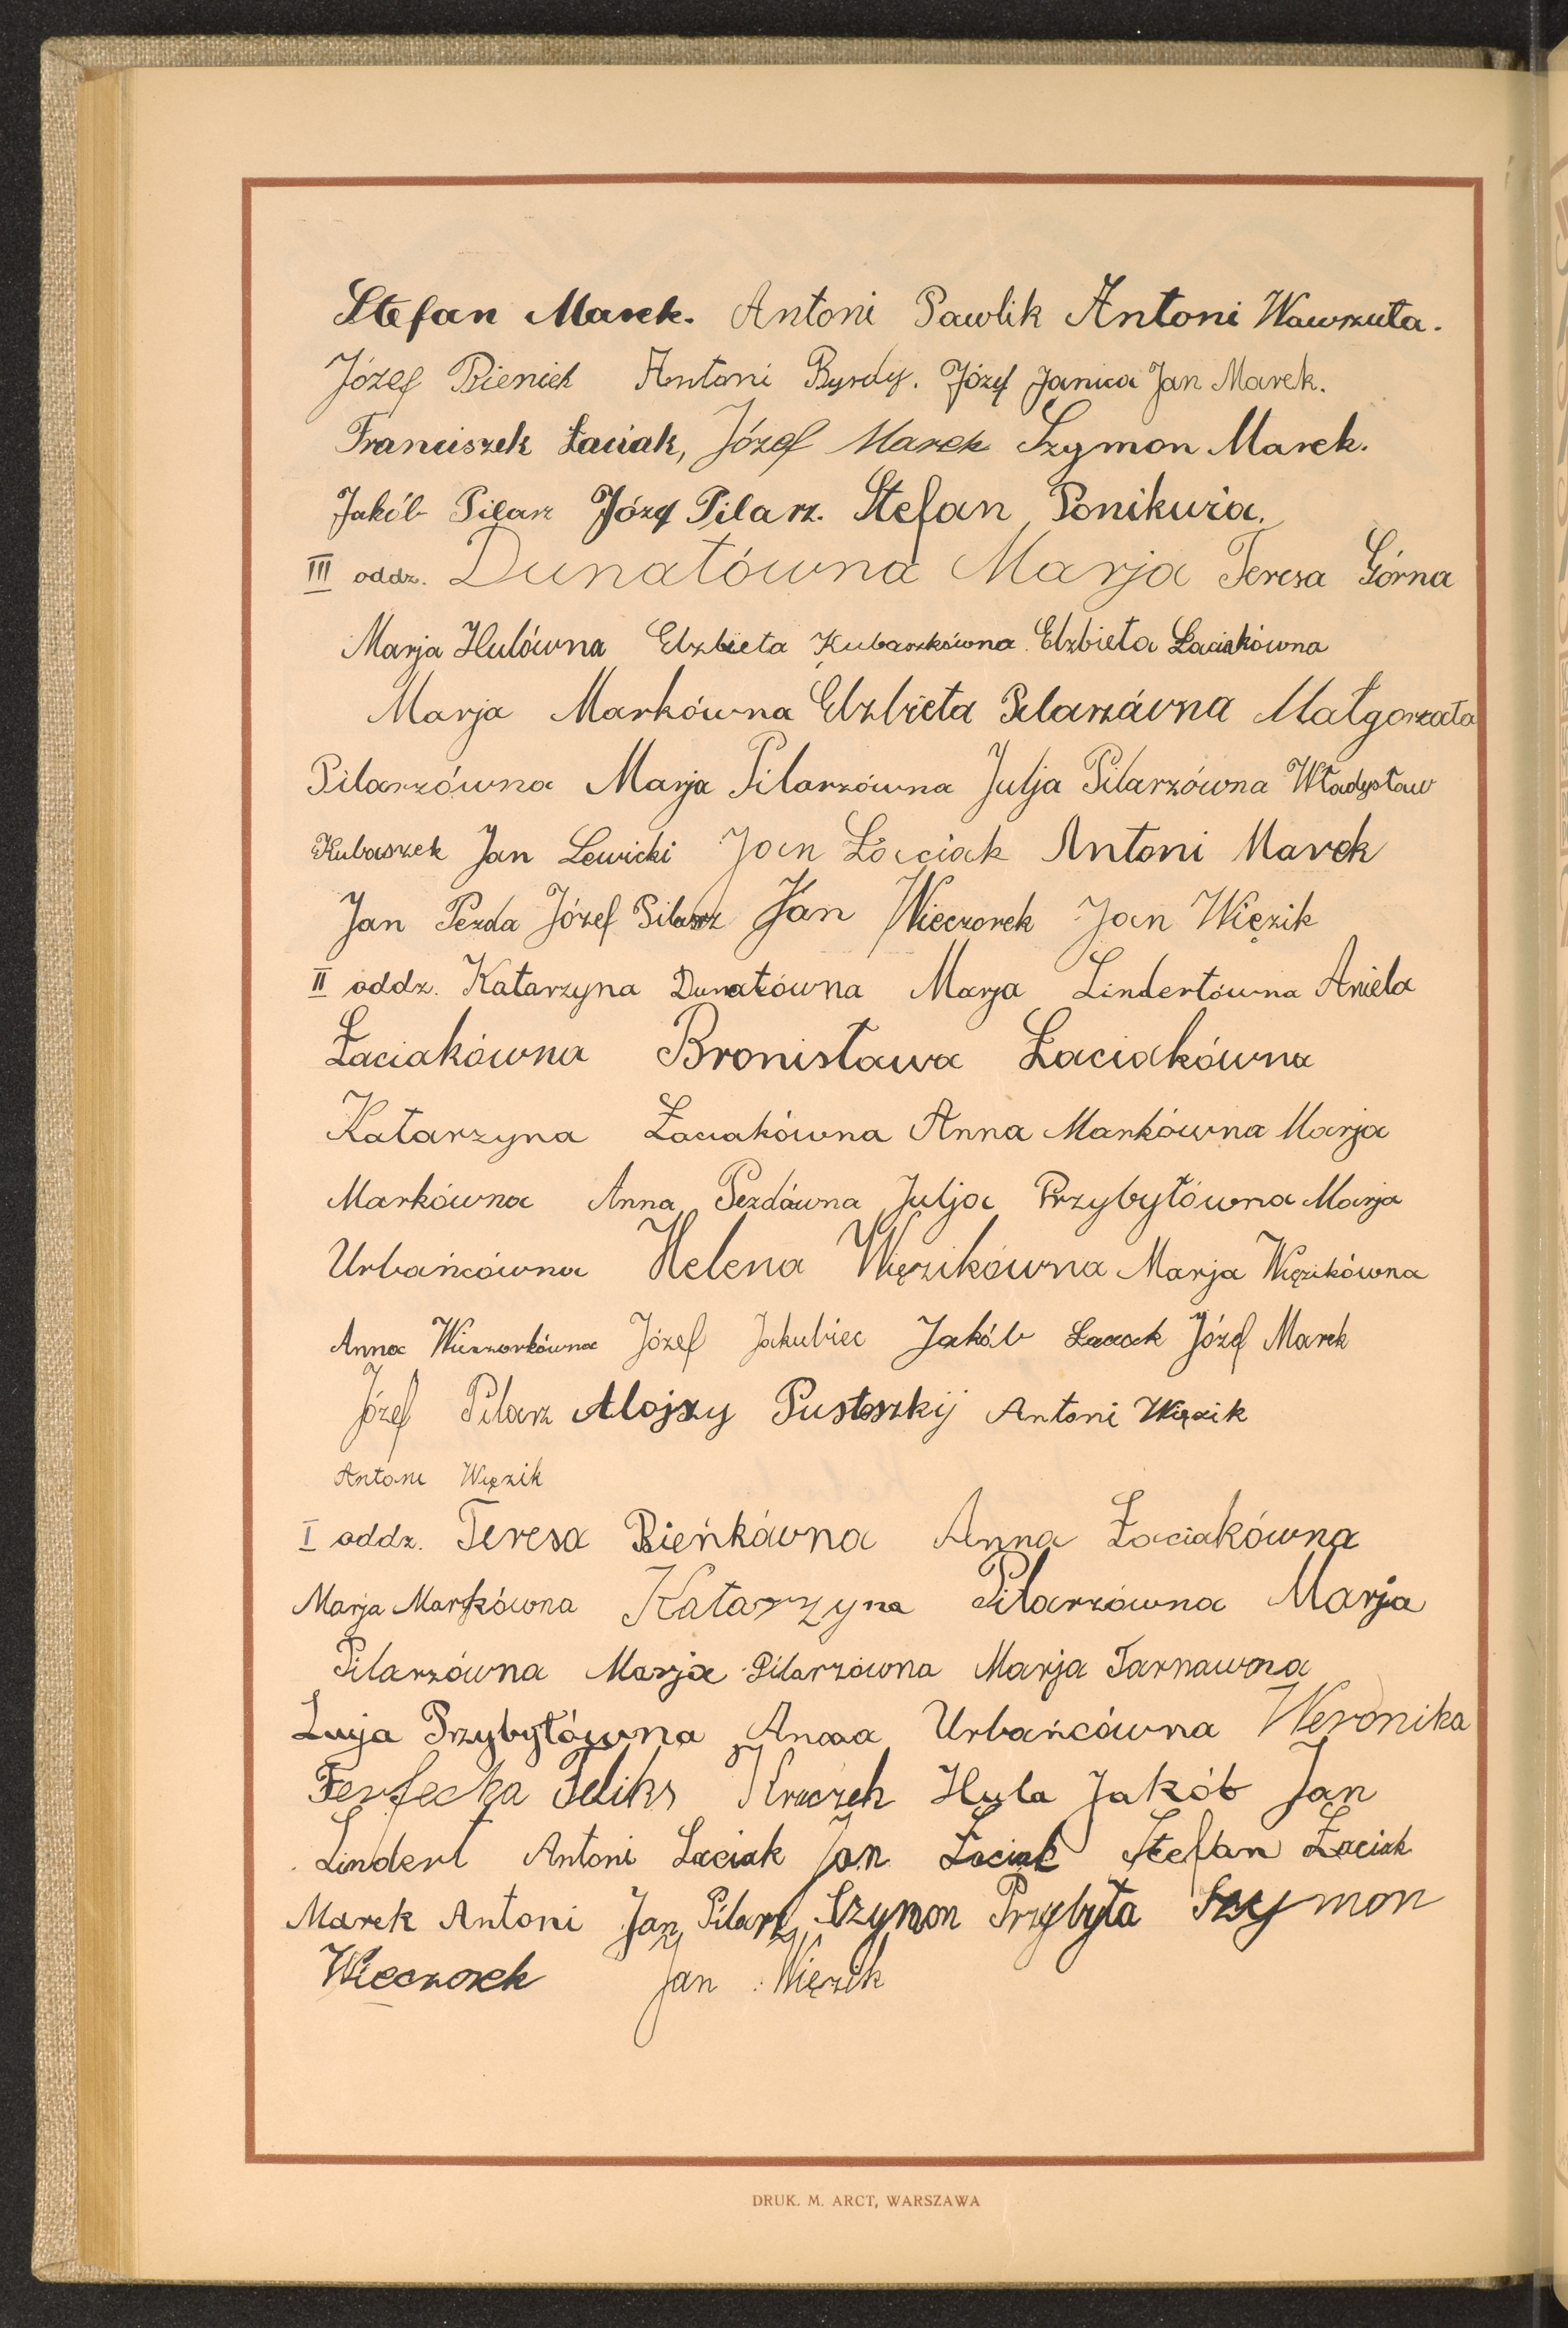 Stefan Marek. Antoni Pawlik Antoni Wawrzuta.
Józef Bieniek Antoni Byrdy. Józef Janica Jan Marek.
Franciszek Łaciak, Józef Marek Szymon Marek.
Jakób Pilarz Józef Pilarz. Stefan Ponikwia.
III oddz. Dunatówna Marja Teresa Górna
Marja Hulówna Elżbieta Kubaszkówna Elżbieta Łaciakówna
Marja Markówna Elżbieta Pilarzówna Małgorzata
Pilarzówna Marja Pilarzówna Julja Pilarzówna Władysław
Kubaszek Jan Lewicki Jan Łaciak Antoni Marek
Jan Pezda Józef Pilarz Jan Wieczorek Jan Więzik
II oddz. Katarzyna Dunatówna Marja Lindertówna Aniela
Łaciakówna Bronisława Łaciakówna
Katarzyna Łaciakówna Anna Markówna Marja
Markówna Anna Pezdówna Julja Przybyłówna Marja
Urbańcówna Helena Więzikówna Marja Więzikówna
Anna Wieczorkówna Józef Jakubiec Jakób Łaciak Józef Marek
Józef Pilarz Alojzy Pustoszkij Antoni Więzik
Antoni Więzik
I oddz. Teresa Bieńkówna Anna Łaciakówna
Marja Markówna Katarzyna Pilarzówna Marja
Pilarzówna Marja Pilarzówna Marja Tarnawona
Łucja Przybyłówna Anna Urbańcówna Weronika
Ferfecka Feliks Kraczek Hula Jakób Jan
Lindert Antoni Łaciak Jan Łaciak Stefan Łaciak
Marek Antoni Jan Pilarz Szymon Przybyła Szymon
Wieczorek Jan Więzik
DRUK. M. ARCT, WARSZAWA